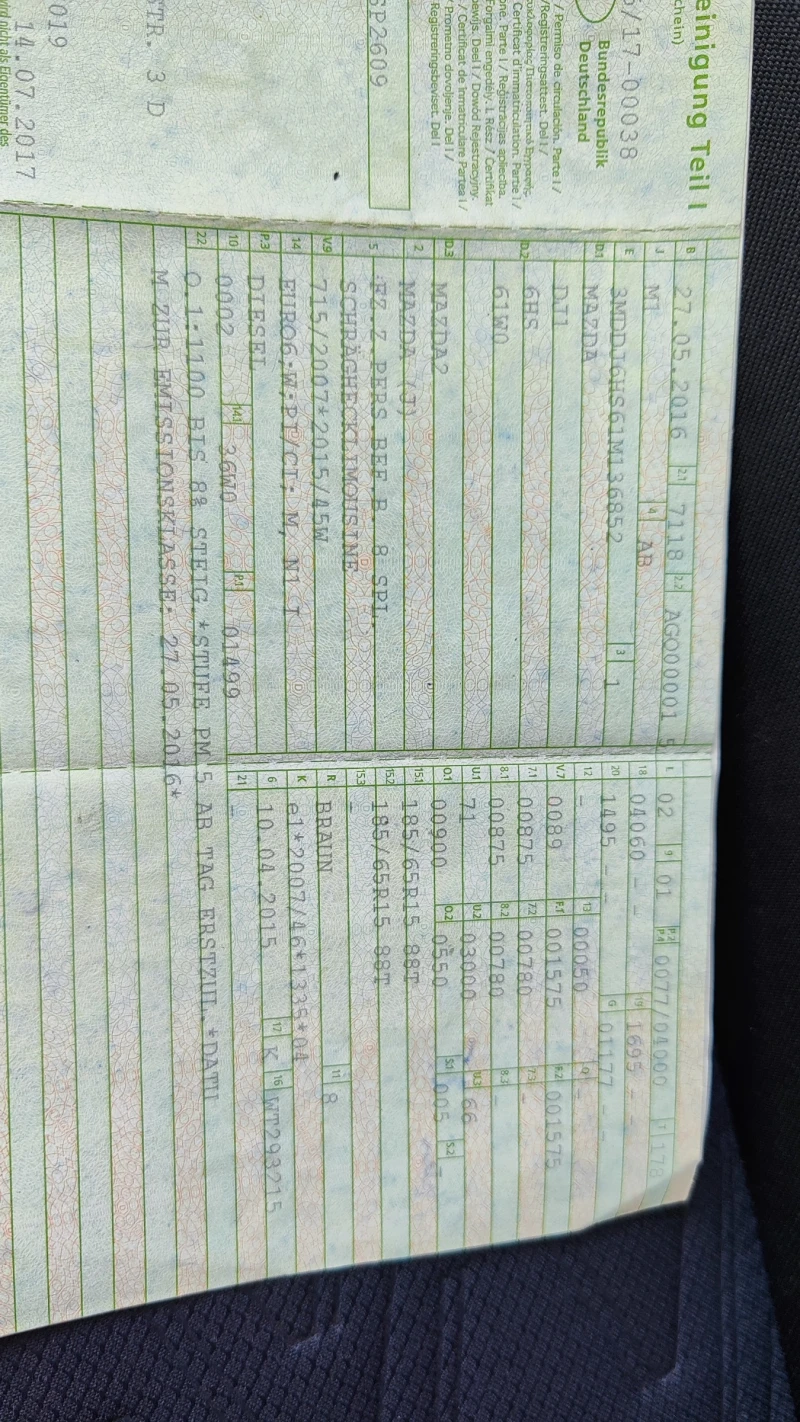 einigung Teil I
chein)
6/17-00038
Bundesrepublik
Deutschland
/ Permiso de circulación. Parte I /
/Registreringsattest. Del I /
Certificat d'immatriculation. Partie I /
one. Parte I / Reģistrācijas apliecība.
Forgalmi engedély. I. Rész / Certifikat
ewijs. Deel I / Dowód Rejestracyjny.
/ Certificat de înmatriculare Partea I /
Prometno dovoljenje. Del I /
Registreringsbeviset. Del I
SP2609
STR. 3 D
019
14.07.2017
wird nicht als Eigentümer des
B 27.05.2016 2.1 7118 2.2 AGO00001 5
J M1 4 AB
E 3MDDJ6HS61M136852 3 1
D.1 MAZDA
DJ1
D.2 6HS
61W0
D.3 MAZDA2
2 MAZDA (J)
5 FZ.Z.PERS.BEF.B. 8 SPL.
SCHRÄGHECKLIMOUSINE
V.9 715/2007*2015/45W
14 EURO6;W;PI/CI: M, N1 I
P.3 DIESEL
10 0002 14.1 36W0 P.1 01499
22 O.1:1100 BIS 8% STEIG.*STUFE PM 5 AB TAG ERSTZUL.*DATU
M ZUR EMISSIONSKLASSE: 27.05.2016*
L 02 9 01 P.2 P.4 0077/04000 T 178
18 04060 - - 19 1695 - -
20 1495 - - G 01177 - -
12 - 13 00050 Q -
V.7 0089 F.1 001575 F.2 001575
7.1 00875 7.2 00780 7.3 -
8.1 00875 8.2 00780 8.3 -
U.1 71 U.2 03000 U.3 66
O.1 00900 O.2 0550 S.1 005 S.2 -
15.1 185/65R15 88T
15.2 185/65R15 88T
15.3 -
R BRAUN 11 8
K e1*2007/46*1335*04
6 10.04.2015 17 K 16 WT293215
21 -